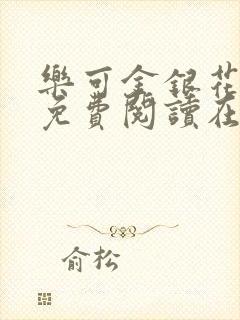 樂可金銀花
免費閱讀在
俞松